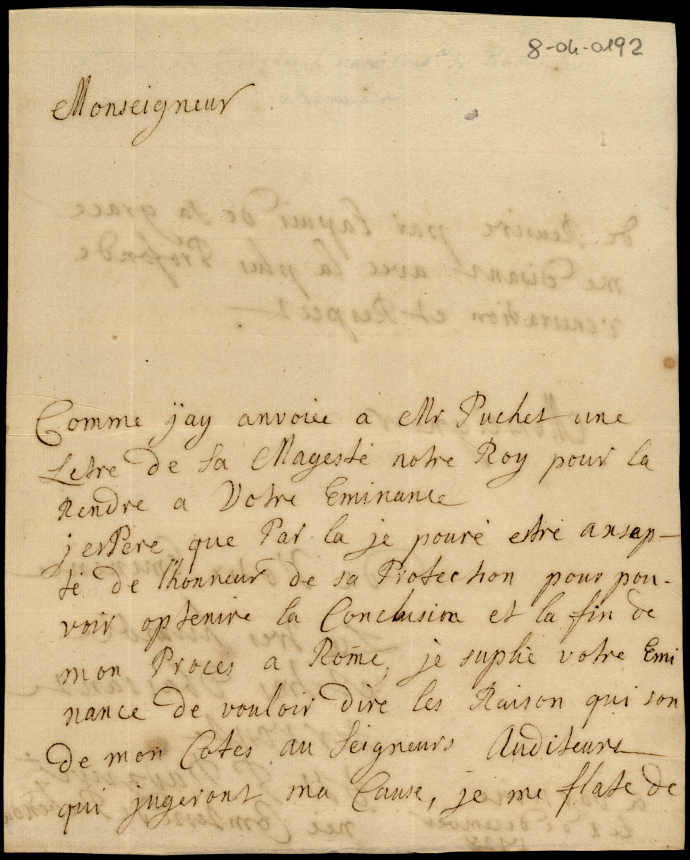 8-04-0192
Monseigneur
Comme j'ay anvoiée a Mr Puchet une
Letre de Sa Magesté notre Roy pour la
Rendre a Votre Eminance
j'esPere que Par la je pouré estre ansap-
té de l'honneur de sa Protection pour pou-
voir optenire la Conclusion et la fin de
mon Proces a Rome, je suplie votre Emi
nance de vouloir dire les Raison qui son
de mon Cotes au Seigneurs Auditeurs
qui jugeront ma Cause, je me flate de